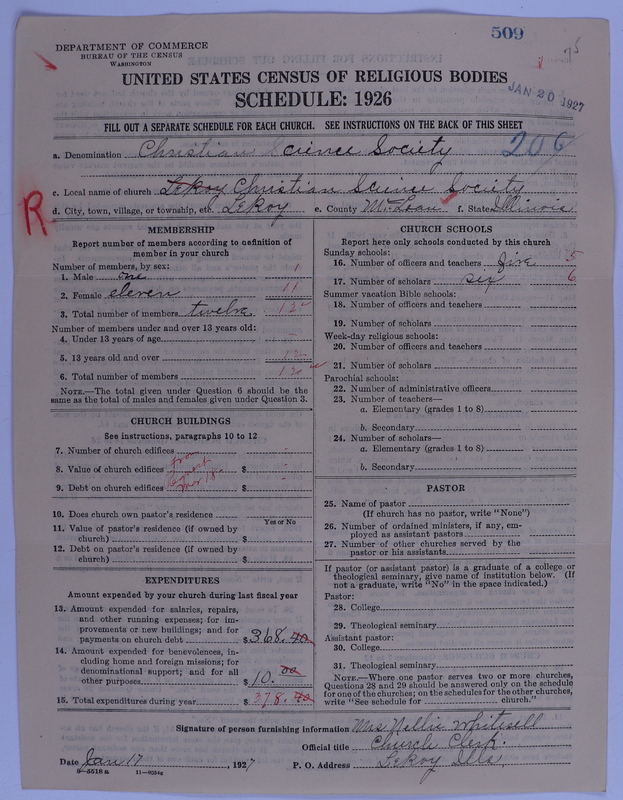 509
75
DEPARTMENT OF COMMERCE
BUREAU OF THE CENSUS
WASHINGTON
UNITED STATES CENSUS OF RELIGIOUS BODIES
SCHEDULE: 1926
JAN 20 1927
FILL OUT A SEPARATE SCHEDULE FOR EACH CHURCH. SEE INSTRUCTIONS ON THE BACK OF THIS SHEET
206
a. Denomination Christian Science Society
c. Local name of church LeRoy Christian Science Society
R
d. City, town, village, or township, etc. LeRoy e. County McLean f. State Illinois
MEMBERSHIP
Report number of members according to definition of
member in your church
Number of members, by sex:
1. Male one 1
2. Female eleven 11
3. Total number of members twelve 12
Number of members under and over 13 years old:
4. Under 13 years of age -
5. 13 years old and over 12
6. Total number of members 12
NOTE.—The total given under Question 6 should be the
same as the total of males and females given under Question 3.
CHURCH BUILDINGS
See instructions, paragraphs 10 to 12
7. Number of church edifices
8. Value of church edifices $
9. Debt on church edifices $
10. Does church own pastor's residence
Yes or No
11. Value of pastor's residence (if owned by
church) $
12. Debt on pastor's residence (if owned by
church) $
EXPENDITURES
Amount expended by your church during last fiscal year
13. Amount expended for salaries, repairs,
and other running expenses; for im-
provements or new buildings; and for
payments on church debt $ 368.40
14. Amount expended for benevolences, in-
cluding home and foreign missions; for
denominational support; and for all
other purposes $ 10.00
15. Total expenditures during year $ 378.40
CHURCH SCHOOLS
Report here only schools conducted by this church
Sunday schools:
16. Number of officers and teachers five 5
17. Number of scholars six 6
Summer vacation Bible schools:
18. Number of officers and teachers
19. Number of scholars
Week-day religious schools:
20. Number of officers and teachers
21. Number of scholars
Parochial schools:
22. Number of administrative officers
23. Number of teachers—
a. Elementary (grades 1 to 8)
b. Secondary
24. Number of scholars—
a. Elementary (grades 1 to 8)
b. Secondary
PASTOR
25. Name of pastor
(If church has no pastor, write "None")
26. Number of ordained ministers, if any, em-
ployed as assistant pastors
27. Number of other churches served by the
pastor or his assistants
If pastor (or assistant pastor) is a graduate of a college or
theological seminary, give name of institution below. (If
not a graduate, write "No" in the space indicated.)
Pastor:
28. College
29. Theological seminary
Assistant pastor:
30. College
31. Theological seminary
NOTE.—Where one pastor serves two or more churches,
Questions 28 and 29 should be answered only on the schedule
for one of the churches; on the schedules for the other churches,
write "See schedule for church."
Signature of person furnishing information Mrs Nellie Whitsell
Official title Church Clerk.
Date Jan 17, 1927 P. O. Address LeRoy Ills
8—5518 a 11—9954g